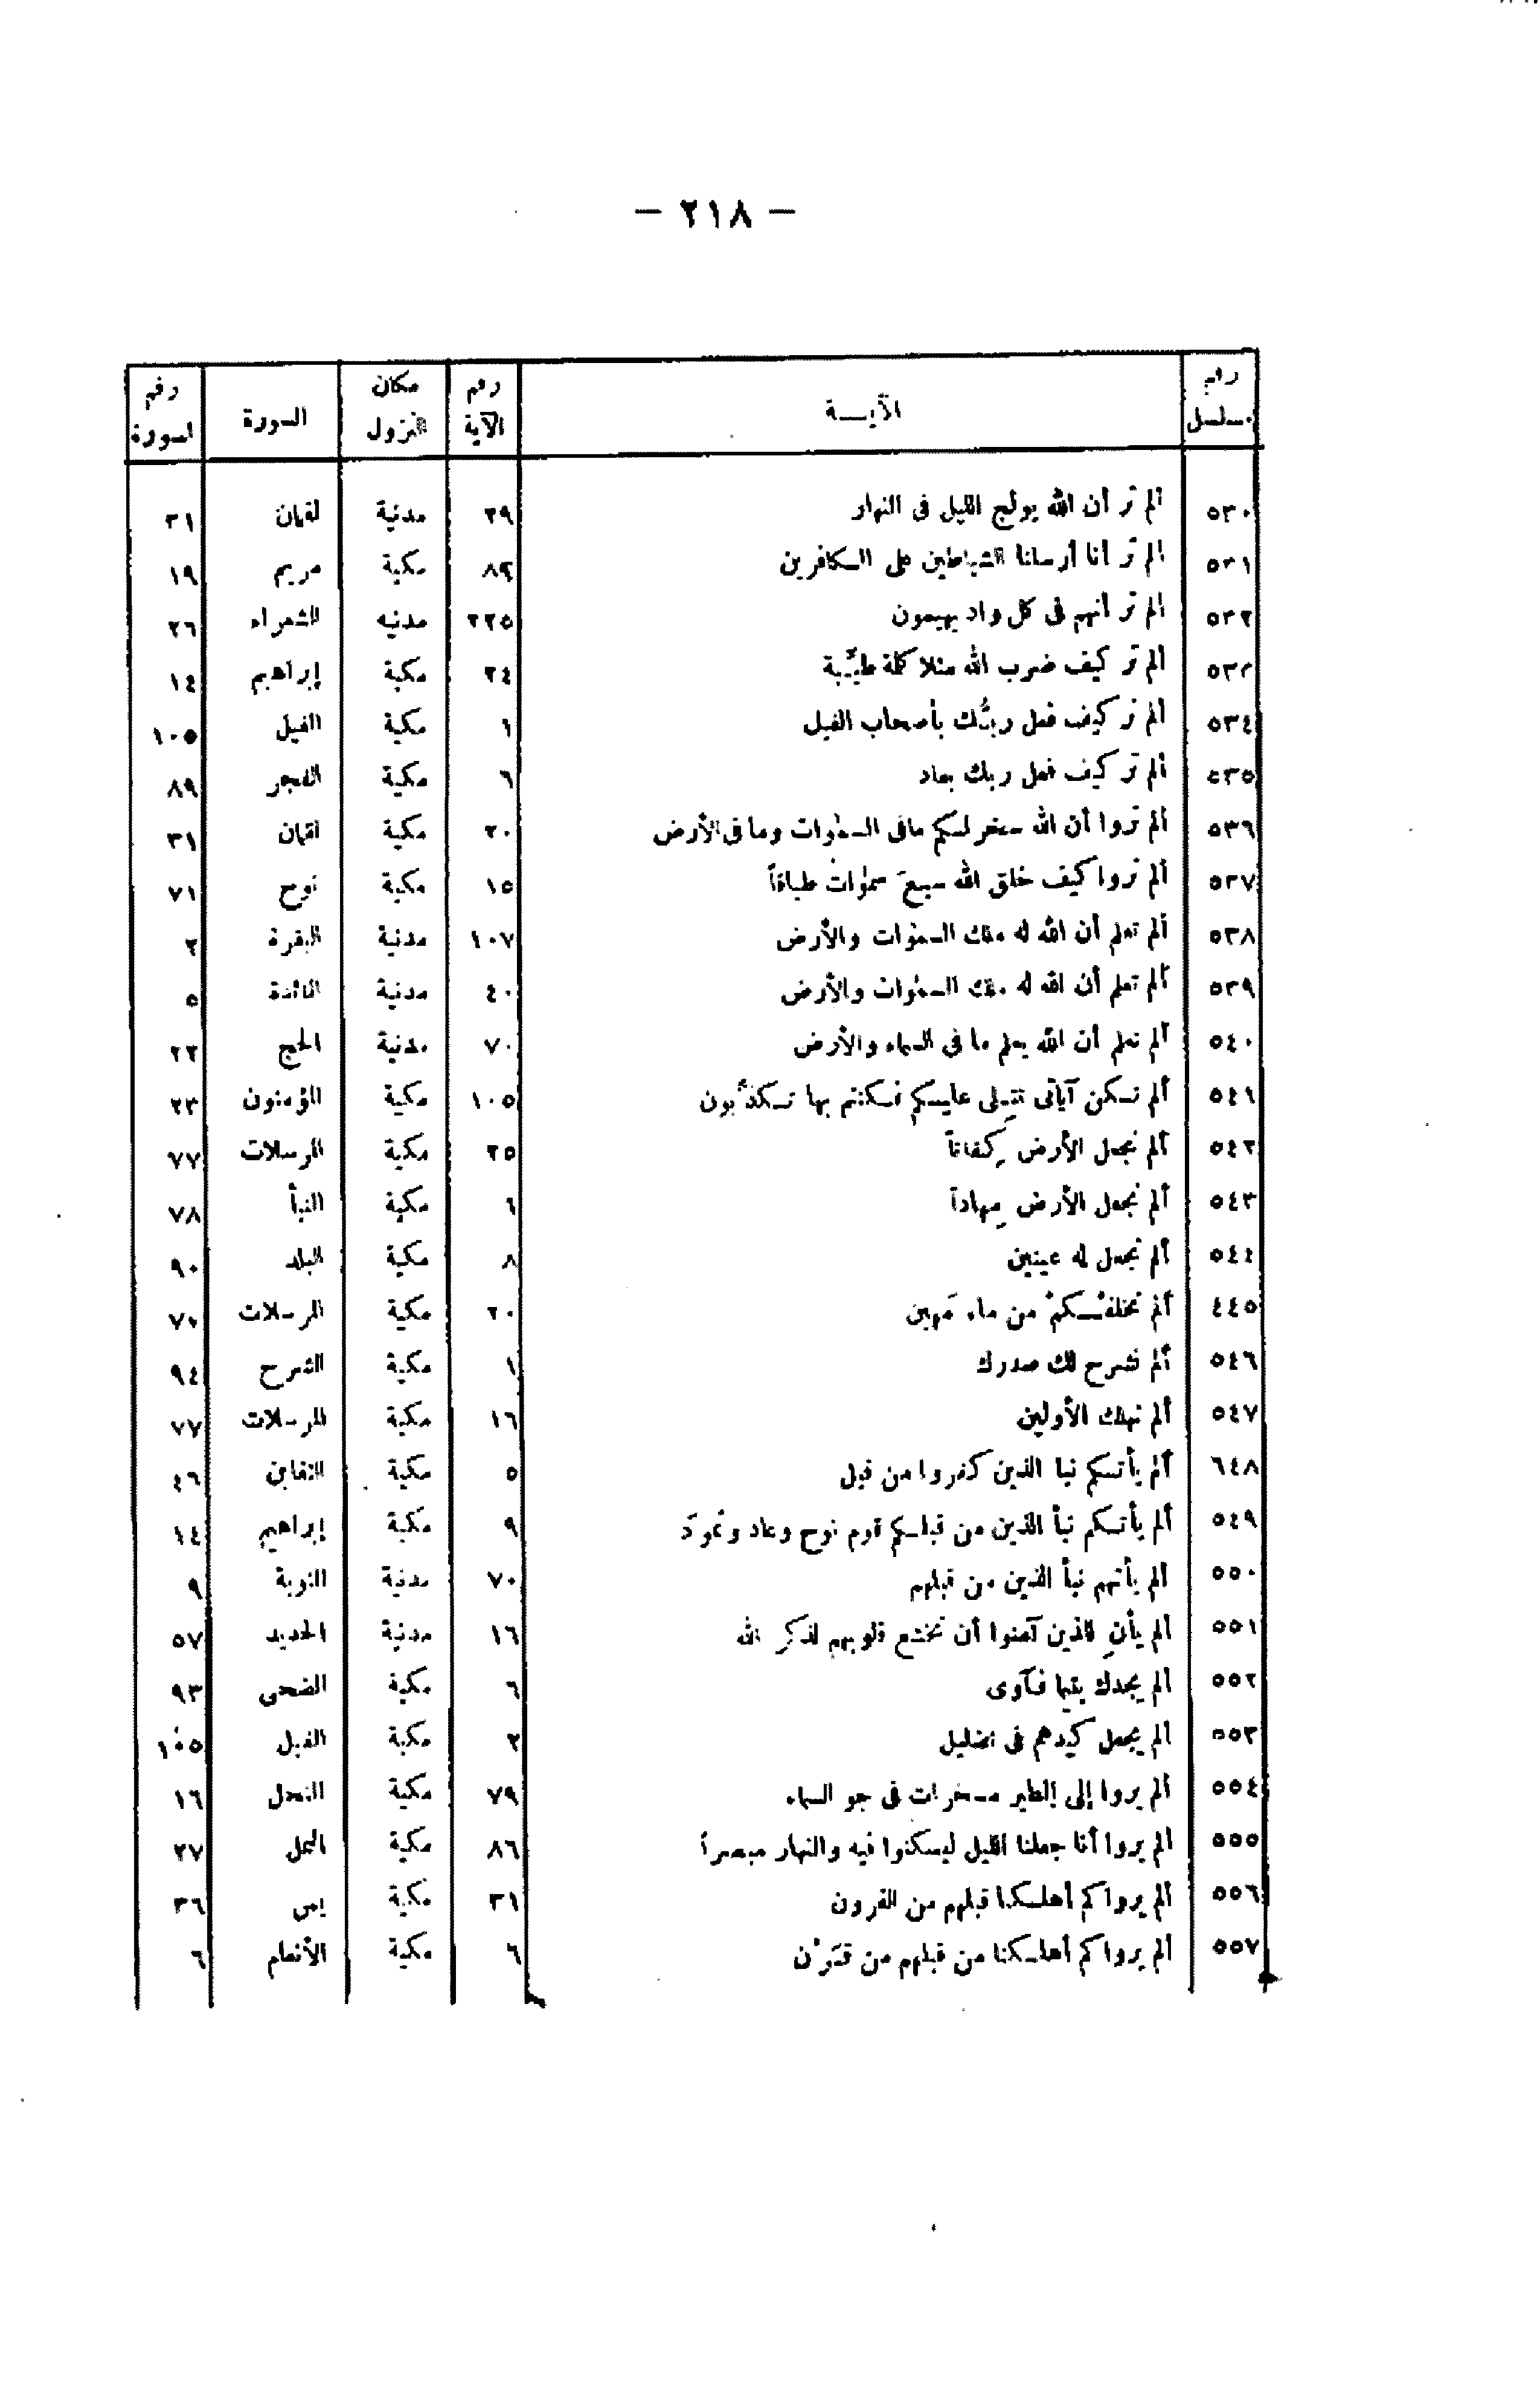 — ٢١٨ —
رقم مسلسل | الآيـــة | رقم الآية | مكان النزول | السورة | رقم السورة
٥٣٠ | ألم تر أن الله يولج الليل فى النهار | ٢٩ | مدنية | لقمان | ٣١
٥٣١ | ألم تر أنا أرسلنا الشياطين على الكافرين | ٨٣ | مكية | مريم | ١٩
٥٣٢ | ألم تر أنهم فى كل واد يهيمون | ٢٢٥ | مدنيه | الشعراء | ٢٦
٥٣٣ | ألم تر كيف ضرب الله مثلا كلمة طيِّبة | ٢٤ | مكية | إبراهيم | ١٤
٥٣٤ | ألم تر كيف فعل ربُّك بأصحاب الفيل | ١ | مكية | الفيل | ١٠٥
٥٣٥ | ألم تر كيف فعل ربك بعاد | ٦ | مكية | الفجر | ٨٩
٥٣٦ | ألم تروا أن الله سخر لكم مافى السمٰوات وما فى الأرض | ٢٠ | مكية | لقمان | ٣١
٥٣٧ | ألم تروا كيف خلق الله سبعَ سمٰوات طباقاً | ١٥ | مكية | نوح | ٧١
٥٣٨ | ألم تعلم أن الله له ملك السمٰوات والأرض | ١٠٧ | مدنية | البقرة | ٢
٥٣٩ | ألم تعلم أن الله له ملك السمٰوات والأرض | ٤٠ | مدنية | المائدة | ٥
٥٤٠ | ألم تعلم أن الله يعلم ما فى السماء والأرض | ٧٠ | مدنية | الحج | ٢٢
٥٤١ | ألم تكن آياتى تتلى عليكم فكنتم بها تكذِّبون | ١٠٥ | مكية | المؤمنون | ٢٣
٥٤٢ | ألم نجعل الأرض كِفاتاً | ٢٥ | مكية | المرسلات | ٧٧
٥٤٣ | ألم نجعل الأرض مِهاداً | ٦ | مكية | النبأ | ٧٨
٥٤٤ | ألم نجعل له عينين | ٨ | مكية | البلد | ٩٠
٤٤٥ | ألم نخلقْـكمْ من ماء مَهين | ٢٠ | مكية | المرسلات | ٧٠
٥٤٦ | ألم نشرح لك صدرك | ١ | مكية | الشرح | ٩٤
٥٤٧ | ألم نهلك الأولين | ١٦ | مكية | المرسلات | ٧٧
٦٤٨ | ألم يأتكم نبأ الذين كفروا من قبل | ٥ | مكية | التغابن | ٤٦
٥٤٩ | ألم يأتكم نبأ الذين من قبلكم قوم نوح وعاد وثمودَ | ٩ | مكية | إبراهيم | ١٤
٥٥٠ | ألم يأتهم نبأ الذين من قبلهم | ٧٠ | مدنية | التوبة | ٩
٥٥١ | ألم يأنِ للذين آمنوا أن تخشع قلوبهم لذكر الله | ١٦ | مدنية | الحديد | ٥٧
٥٥٢ | ألم يجدك يتيما فآوى | ٦ | مكية | الضحى | ٩٣
٥٥٣ | ألم يجعل كيدهم فى تضليل | ٢ | مكية | الفيل | ١٠٥
٥٥٤ | ألم يروا إلى الطير مسخرات فى جو السماء | ٧٩ | مكية | النحل | ١٦
٥٥٥ | ألم يروا أنا جعلنا الليل ليسكنوا فيه والنهار مبصراً | ٨٦ | مكية | النمل | ٢٧
٥٥٦ | ألم يروا كم أهلكنا قبلهم من القرون | ٣١ | مكية | يس | ٣٦
٥٥٧ | ألم يروا كم أهلكنا من قبلهم من قَرْن | ٦ | مكية | الأنعام | ٦